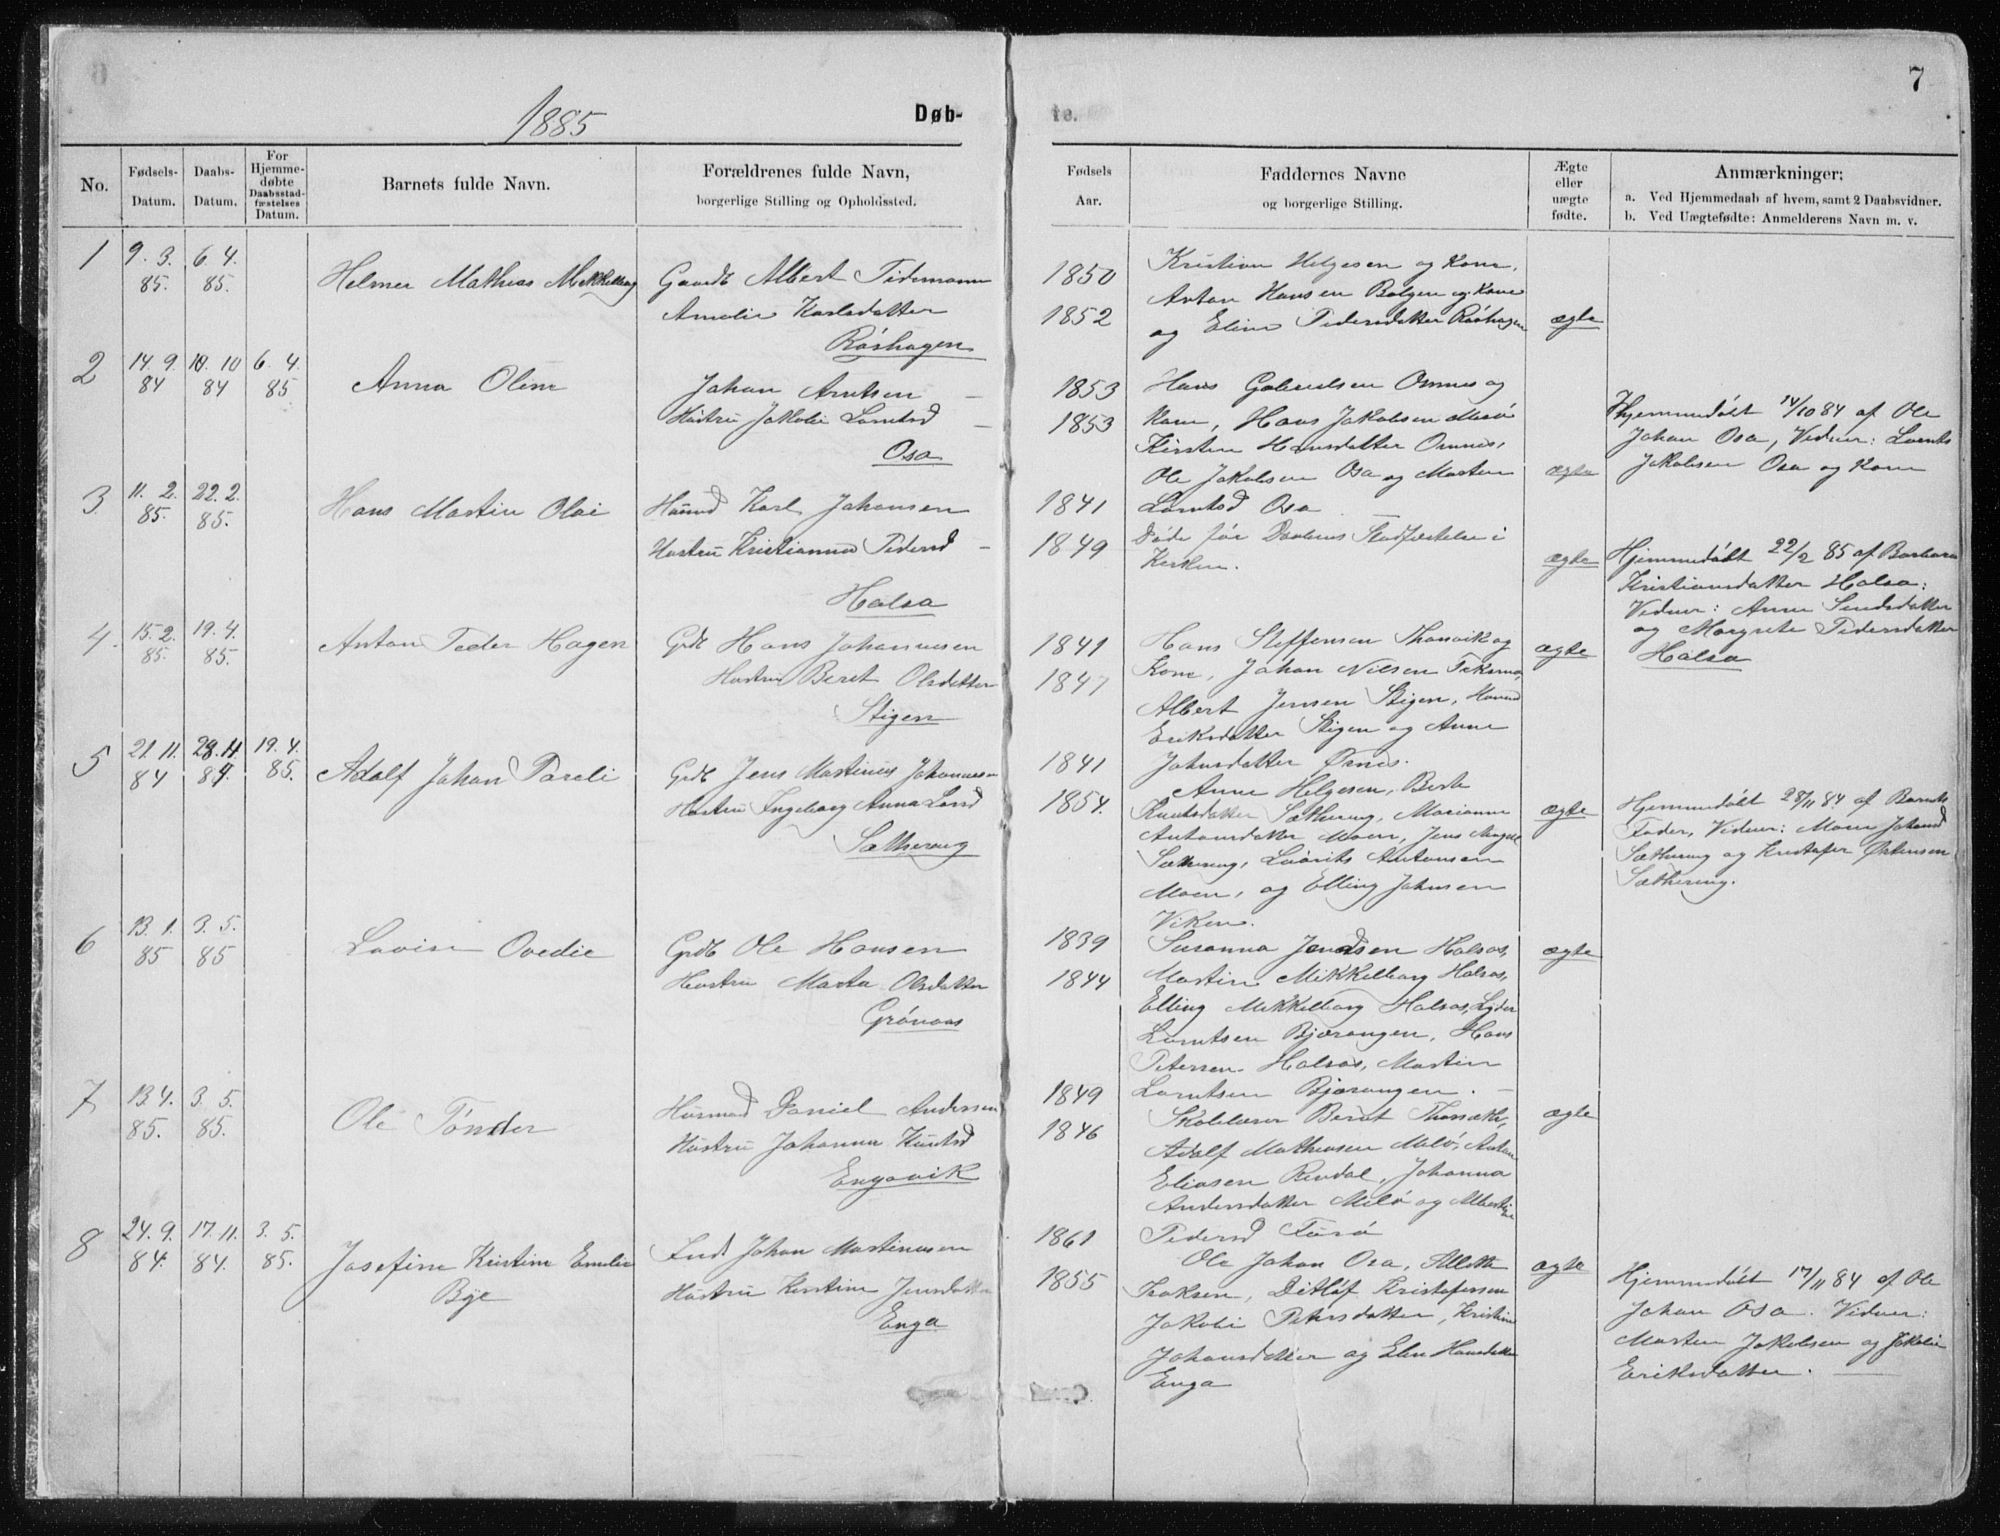 1885
Døb-
te.
7
No.
Fødsels-
Datum.
Daabs-
Datum.
For
Hjemme-
døbte
Daabsstad-
fæstelses
Datum.
Barnets fulde Navn.
Forældrenes fulde Navn,
borgerlige Stilling og Opholdssted.
Fødsels
Aar.
Faddernes Navne
og borgerlige Stilling.
Ægte
eller
uægte
fødte.
Anmærkninger;
a. Ved Hjemmedaab af hvem, samt 2 Daabsvidner.
b. Ved Uægtefødte: Anmelderens Navn m. v.
1
9. 3.
85.
6. 4.
85.
Helmer Mathias Mikkelborg
Gaardb Albert Pedersen
Amalie Karlsdatter
Råshagen
1850
1852
Kristian Helgesen og Kone,
Anton Hansen Bolgen og Kone
og Eline Pedersdatter Råshagen
ægte
2
14. 9.
84
10. 10
84
6. 4.
85
Anna Oline
Johan Arntsen
Hustru Jakobie Lorntsd
Osa
1853
1853
Hans Gabrielsen Ømnes og
Kone, Hans Jakobsen Meisö
Kirsten Hansdatter Ømnes,
Ole Jakobsen Osa og Marten
Lorntsd Osa
ægte
Hjemmedøbt 14/10 84 af Ole
Johan Osa, Vidner: Lornts
Jakobsen Osa og Kone
3
11. 2.
85.
22. 2.
85.
Hans Martin Olai
Husmd Karl Johansen
Hustru Kristianna Pedersd
Halsa
1841
1849
Døde før Daabens Stadfæstelse i
Kirken.
ægte
Hjemmedøbt 22/2 85 af Barbara
Kristiansdatter Halsa:
Vidner: Anne Sendsdatter
og Margrete Pedersdatter
Halsa
4
15. 2.
85.
19. 4.
85.
Anton Peder Hagen
Grdb Hans Johannesen
Hustru Beret Olsdatter
Stigen
1841
1847
Hans Steffensen Thonvik og
Kone, Johan Nilsen Teksmo,
Albert Jensen Stigen,
Eriksdatter Stigen og Anne
Johnsdatter Ørnes.
ægte
5
21. 11.
84
28. 11
84.
19. 4.
85.
Adolf Johan Pareli
Grdb Jens Martinus Johannesen
Hustru Ingeborg Anna Larsd
Sæthereng
1841
1854.
Anne Helgesen, Berte
Knutsdatter Sæthereng, Marianne
Antonsdatter Moen, Jens
Sæthereng, Laurits Antonsen
Moen, og Elling Johnsen
Viken.
ægte
Hjemmedøbt 28/11 84 af Barnets
Fader, Vidner: Johansd
Sætherng og Kristofer Østensen
Sætherng.
6
13. 1.
85
3. 5.
85
Lovise Ovedie
Grdb Ole Hansen
Hustru Marta Olsdatter
Grönaas
1839
1844
Susanna Jensen Halsos,
Martin Mikkelborg Halsos,
Elling Mikkelborg Halsos, Lyder
Lorntsen Bjærangen, Hans
Petersen Halsos, Martin
Lorntsen Bjærangen.
ægte
7
13. 4.
85.
3. 5.
85.
Ole Tönder
Husmad Daniel Andersen
Hustru Johanna Knutsd
Engavik
1849
1846
Skolelærer Bernt Thoresth,
Adolf Mathiasen Melö, Anton
Eliasen Rendal, Johanna
Andersdatter Melö og Albertine
Pedersd Furö
ægte
8
24. 9.
84.
17. 11.
84.
3. 5.
85.
Josefine Kristine Emelie
Bye
Inds Johan Martinusen
Hustru Kerstine Jensdatter
Enga
1861
1855
Ole Johan Osa, Alette
Isaksen, Ditlöf Kristofersen
Jakobie Petersdatter, Kristine
Johansdatter og Elen Hansdatter
Enga
ægte
Hjemmedøbt 17/11 84 af Ole
Johan Osa. Vidner:
Marten Jakobsen og Jakobie
Eriksdatter.